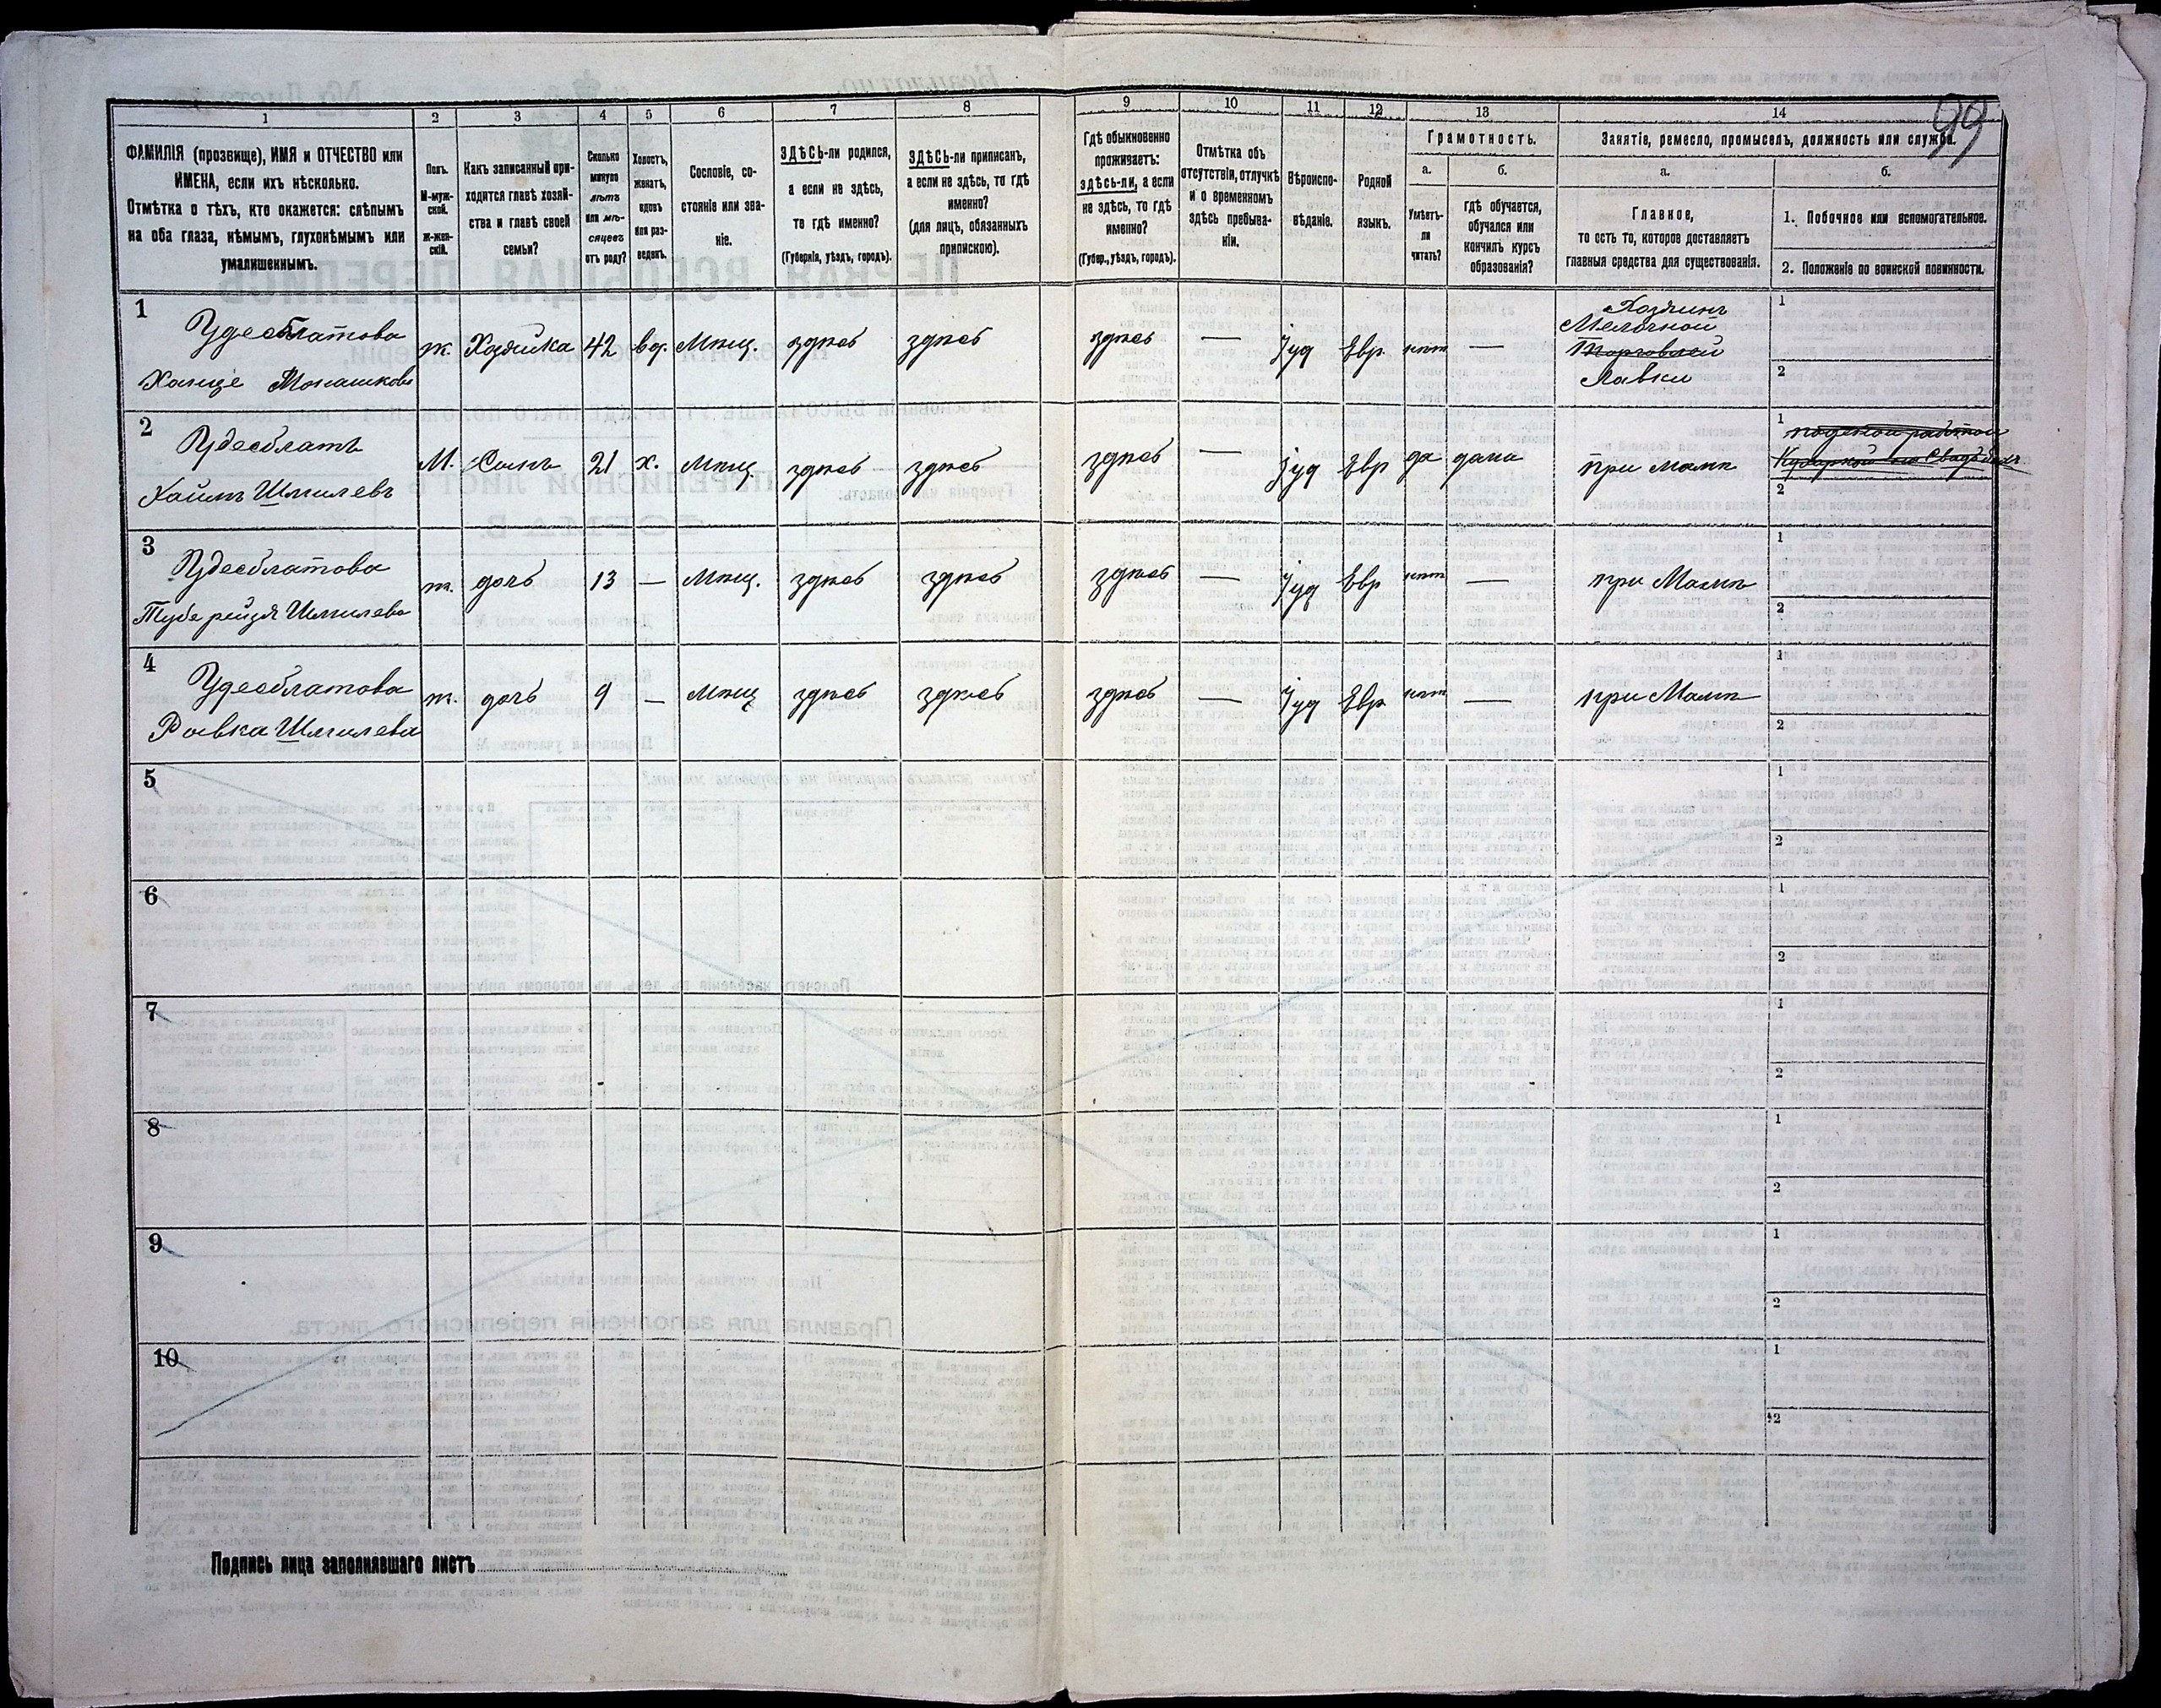 99
1 2 3 4 5 6 7 8 9 10 11 12 13 14
ФАМИЛІЯ (прозвище), ИМЯ и ОТЧЕСТВО или
ИМЕНА, если ихъ нѣсколько.
Отмѣтка о тѣхъ, кто окажется: слѣпымъ
на оба глаза, нѣмымъ, глухонѣмымъ или
умалишеннымъ.
Полъ.
М-муж-
ской.
ж-жен-
скій.
Какъ записанный при-
ходится главѣ хозяй-
ства и главѣ своей
семьи?
Сколько
минуло
лѣтъ
или мѣ-
сяцевъ
отъ роду?
Холостъ,
женатъ,
вдовъ
или раз-
веденъ.
Сословіе, со-
стояніе или зва-
ніе.
ЗДѢСЬ-ли родился,
а если не здѣсь,
то гдѣ именно?
(Губернія, уѣздъ, городъ).
ЗДѢСЬ-ли приписанъ,
а если не здѣсь, то гдѣ
именно?
(для лицъ, обязанныхъ
припискою).
Гдѣ обыкновенно
проживаетъ:
здѣсь-ли, а если
не здѣсь, то гдѣ
именно?
(Губер., уѣздъ, городъ).
Отмѣтка объ
отсутствіи, отлучкѣ
и о временномъ
здѣсь пребыва-
ніи.
Вѣроиспо-
вѣданіе.
Родной
языкъ.
Грамотность.
а.
Умѣетъ-
ли
читать?
б.
гдѣ обучается,
обучался или
кончилъ курсъ
образованія?
Занятіе, ремесло, промыселъ, должность или служба.
а.
Главное,
то есть то, которое доставляетъ
главныя средства для существованія.
б.
1. Побочное или вспомогательное.
2. Положеніе по воинской повинности.
1
Удесблатова
Ханце
ж. Хозяйка 42 вд. Мѣщ. здѣсь здѣсь здѣсь — Іуд Евр. нѣт —
Хозяинъ
Мелочной
Торговлей
Лавки
1
2
2
Удесблатъ
Хаимъ Шмилевъ
М. Сынъ 21 х. Мѣщ. здѣсь здѣсь здѣсь — Іуд Евр да дома при мамѣ
1 поденой работой
2
3
Удесблатова
Тубе рейзя Шмилева
ж. дочь 13 — Мѣщ. здѣсь здѣсь здѣсь — Іуд Евр нѣт — при Мамѣ
1
2
4
Удесблатова
Ривка Шмилева
ж. дочь 9 — Мѣщ здѣсь здѣсь здѣсь — Іуд Евр нѣт — при Мамѣ
1
2
5
1
2
6
1
2
7
1
2
8
1
2
9
1
2
10
1
2
Подпись лица заполнявшаго листъ